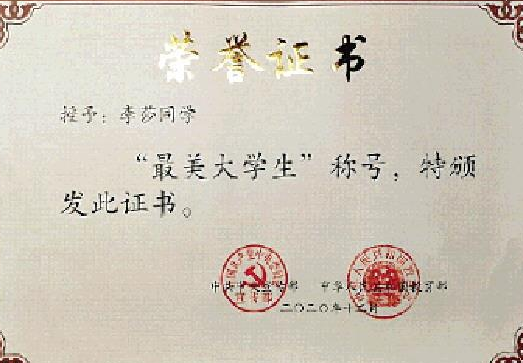 荣誉证书
授予：李莎同学
“最美大学生”称号，特颁
发此证书。
中共中央宣传部 中华人民共和国教育部
二〇二〇年十二月